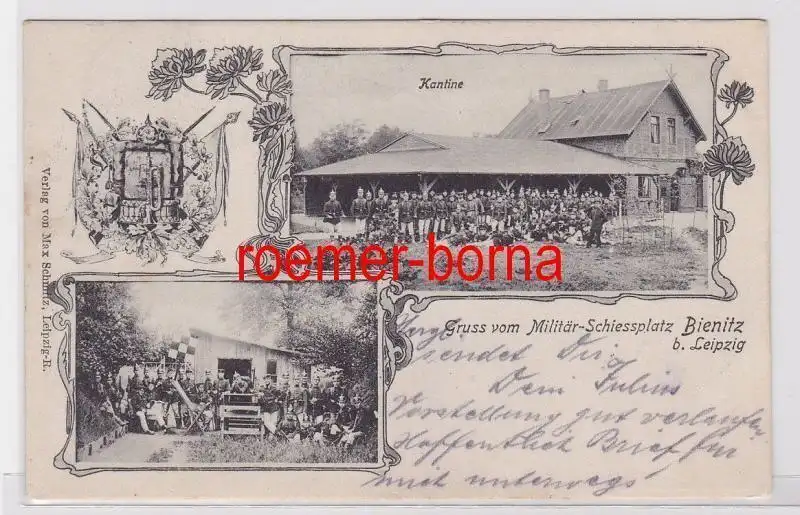 Kantine
Verlag von Max Schmitz, Leipzig-R.
roemer-borna
Gruss vom Militär-Schiessplatz Bienitz
b. Leipzig
sendet Dir
Dein Julius
Vorstellung gut verlaufen
Hoffentlich Brief für
mich unterwegs